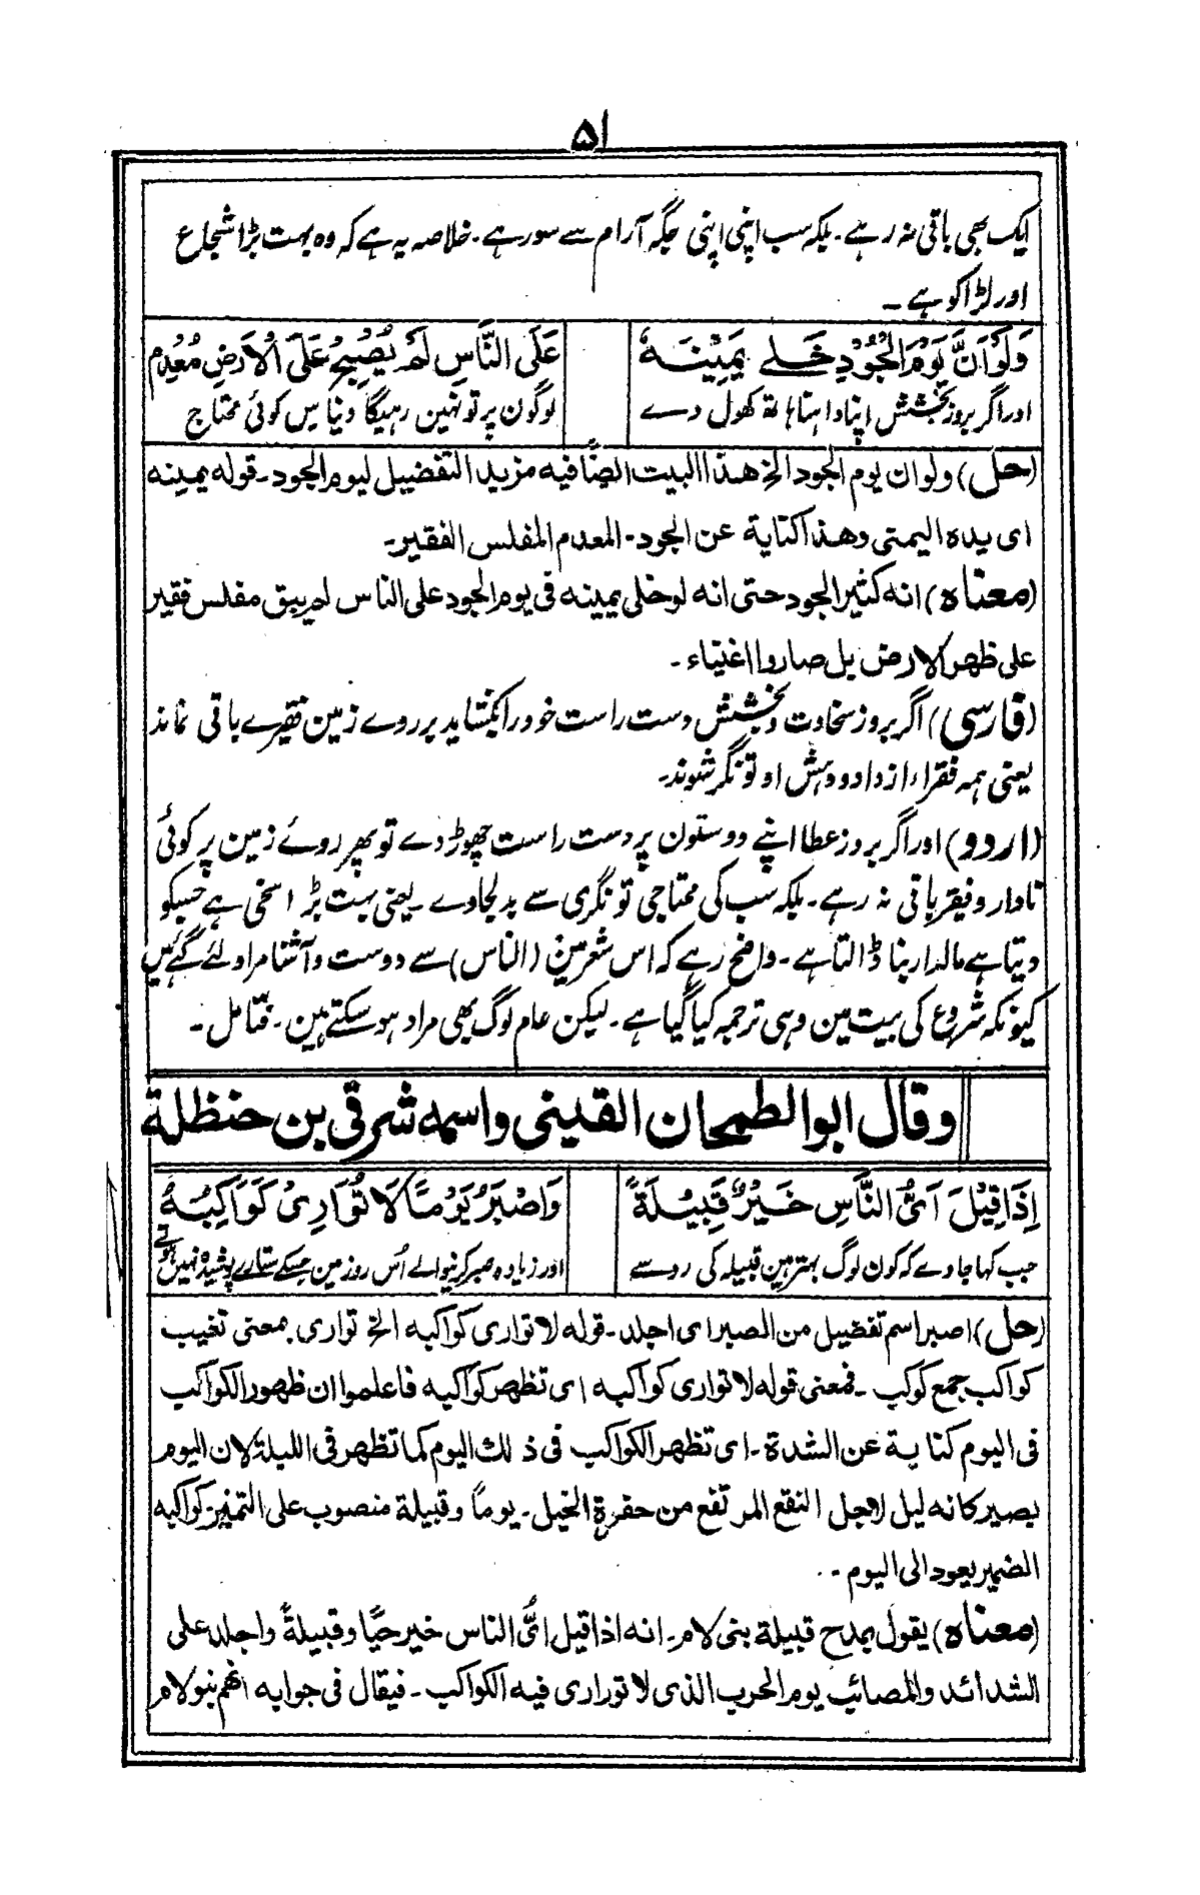 ۵۱
ایک بھی باقی نہ رہے۔ بلکہ سب اپنی اپنی جگہ آرام سے سو رہے۔ خلاصہ یہ ہے کہ وہ بہت بڑا شجاع
اور لڑاکو ہے۔
وَلَوْ اَنَّ يَوْمَ الْجُوْدِ خَلّٰے يَمِيْنَهٗ عَلَى النَّاسِ لَمْ يُصْبِحْ عَلَى الْاَرْضِ مُعْدِم
اور اگر بروز بخشش اپنا داہنا ہاتھ کھول دے لوگون پر تو نہین رہیگا دنیا میں کوئی محتاج
(حل) ولوان يوم الجود الخ هذا البيت ايضًا فيه مزيد التفضيل ليوم الجود۔ قوله يمينه
اى يده اليمنى وهذا كناية عن الجود۔ المعدم المفلس الفقير۔
(معناه) انه كثير الجود حتى انه لو خلى يمينه فى يوم الجود على الناس لم يبق مفلس فقير
على ظهر الارض بل صاروا اغنياء۔
(فارسی) اگر بروز سخاوت و بخشش دست راست خود را بکشاید پر روے زمین فقیرے باقی نماند
یعنی ہمہ فقراء از داد و دہش او تونگر شوند۔
(اردو) اور اگر بروز عطا اپنے دوستون پر دست راست چھوڑ دے تو پھر روئے زمین پر کوئی
نادار و فقیر باقی نہ رہے۔ بلکہ سب کی محتاجی تونگری سے بدلجاوے۔ یعنی بہت بڑا سخی ہے جسکو
دیتا ہے مالدار بنا ڈالتا ہے۔ واضح رہے کہ اس شعر مین (الناس) سے دوست و آشنا مراد لئے گئے ہیں
کیونکہ شروع کی بیت مین وہی ترجمہ کیا گیا ہے۔ لیکن عام لوگ بھی مراد ہو سکتے ہین۔ فتامل۔
وقال ابو الطمحان القينى واسمه شرقى بن حنظلة
اِذَا قِيْلَ اَىُّ النَّاسِ خَيْرٌ قَبِيْلَةً وَاَصْبَرُ يَوْمًا لَا تُوَارِىْ كَوَاكِبُهُ
جب کہا جاوے کہ کون لوگ بہتر ہین قبیلہ کی رو سے اور زیادہ صبر کرنیوالے اُس روز مین جسکے ستارے پوشیدہ نہیں ہوتے
(حل) اصبر اسم تفضيل من الصبر اى اجلد۔ قوله لا توارى كواكبه الخ توارى بمعنى تغيب
كواكب جمع كوكب۔ فمعنى قوله لا توارى كواكبه اى تظهر كواكبه فاعلموا ان ظهور الكواكب
فى اليوم كناية عن الشدة۔ اى تظهر الكواكب فى ذلك اليوم كما تظهر فى الليلة لان اليوم
يصير كانه ليل لاجل النقع المرتفع من حفرة الخيل۔ يومًا وقبيلة منصوب على التمييز۔ كواكبه
الضمير يعود الى اليوم۔
(معناه) يقول يمدح قبيلة بنى لام۔ انه اذا قيل اىُّ الناس خير حيًا وقبيلةً واجلد على
الشدائد والمصائب يوم الحرب الذى لا توارى فيه الكواكب۔ فيقال فى جوابه انهم بنو لام